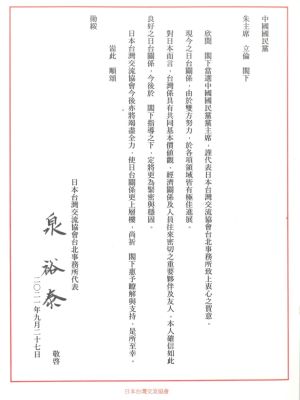 中國國民黨
朱主席　立倫　閣下
欣聞　閣下當選中國國民黨黨主席，謹代表日本台灣交流協會台北事務所致上衷心之賀意。
現今之日台關係，由於雙方努力，於各項領域皆有極佳進展。
對日本而言，台灣係具有共同基本價值觀，經濟關係及人員往來密切之重要夥伴及友人。本人確信如此
良好之日台關係，今後於　閣下指導之下，定將更為緊密與穩固。
日本台灣交流協會今後亦將竭盡全力，使日台關係更上層樓，尚祈　閣下惠予瞭解與支持，是所至幸。
耑此　順頌
勛綏
日本台灣交流協會台北事務所代表
泉　裕泰
敬啓
二〇二一年九月二十七日
日本台灣交流協會